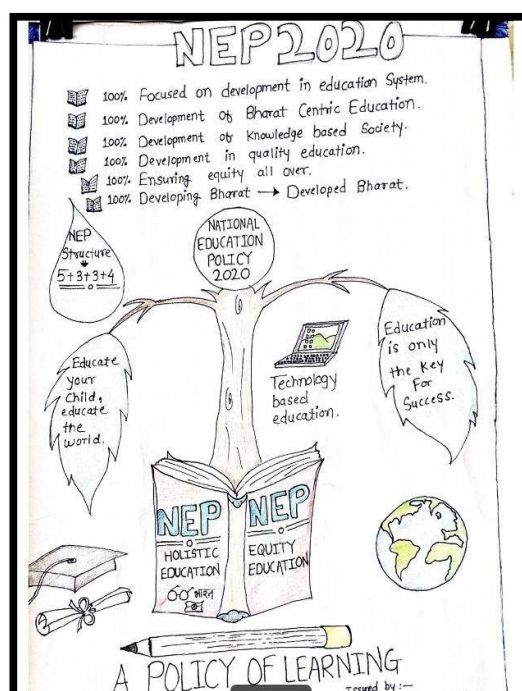 NEP2020
100% Focused on development in education System.
100% Development of Bharat Centric Education.
100% Development of Knowledge based Society.
100% Development in quality education.
100% Ensuring equity all over.
100% Developing Bharat → Developed Bharat.
NEP
Structure
5+3+3+4
NATIONAL
EDUCATION
POLICY
2020
Educate
your
Child,
educate
the
world.
Technology
based
education.
Education
is only
the Key
For
Success.
NEP
HOLISTIC
EDUCATION
भारत
NEP
EQUITY
EDUCATION
A POLICY OF LEARNING
Issued by :-